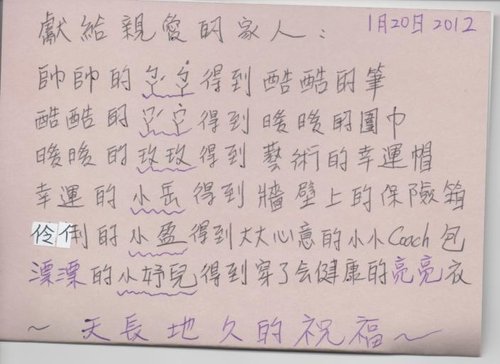 獻給親愛的家人：
1月20日2012
帥帥的 得到酷酷的筆
酷酷的 得到暖暖的圍巾
暖暖的玫玫得到藝術的幸運帽
幸運的小岳得到牆壁上的保險箱
伶俐的小盈得到大大心意的小小Coach包
漂漂的小妤兒得到穿了会健康的亮亮衣
～天長地久的祝福～